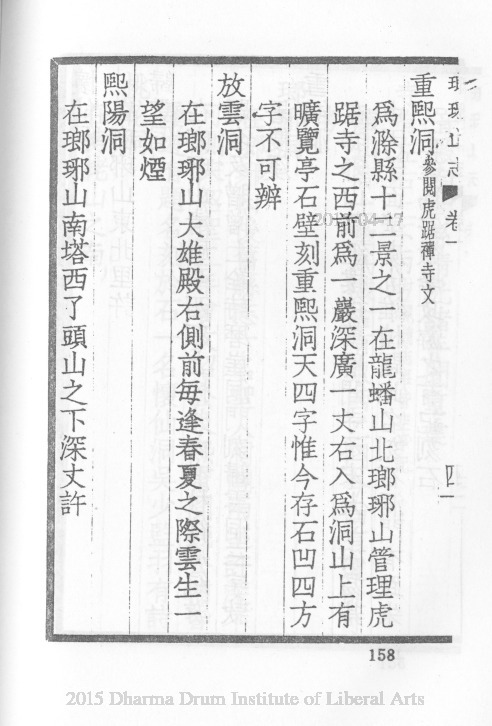 瑯琊山志 卷一 四一
重熙洞 參閱虎踞禪寺文
爲滁縣十二景之一在龍蟠山北瑯琊山管理虎
踞寺之西前爲一巖深廣一丈右入爲洞山上有
曠覽亭石壁刻重熙洞天四字惟今存石凹四方
字不可辨
放雲洞
在瑯琊山大雄殿右側前每逢春夏之際雲生一
望如煙
熙陽洞
在瑯琊山南塔西了頭山之下深丈許
158
2015 Dharma Drum Institute of Liberal Arts